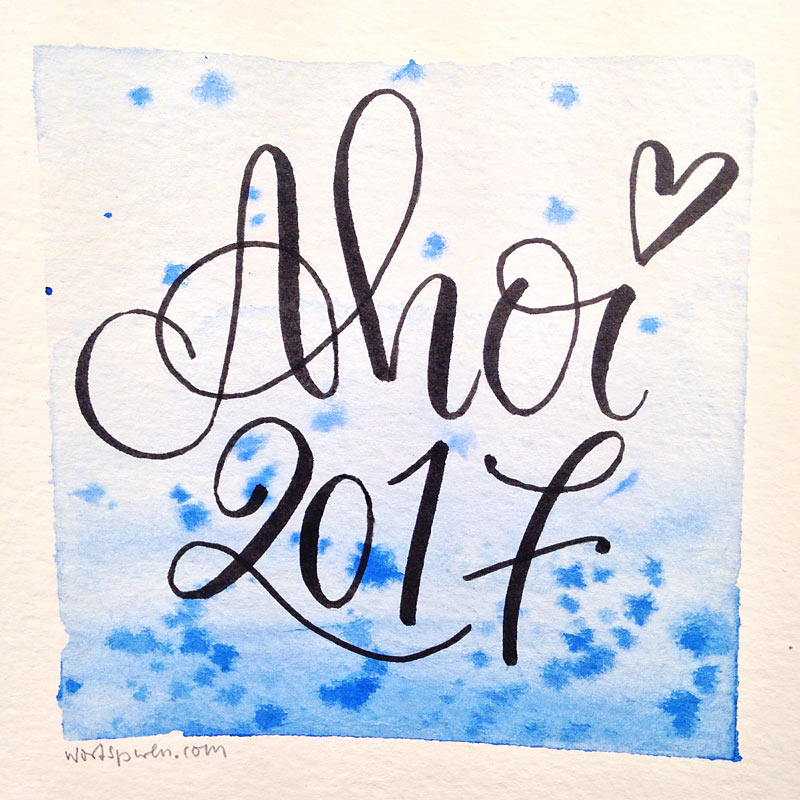 Ahoi
2017
wortspuren.com